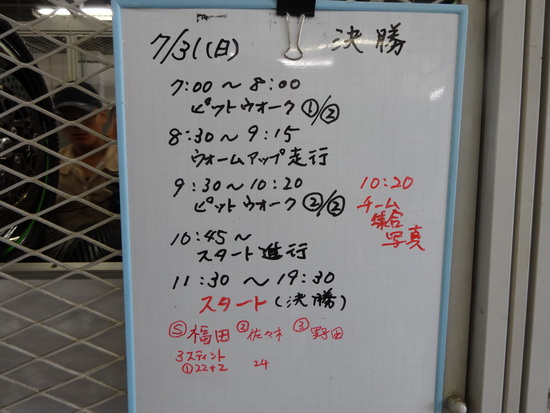 7/31(日) 決勝
7:00〜8:00
ピットウオーク①/②
8:30〜9:15
ウォームアップ走行
9:30〜10:20
ピットウオーク②/②
10:20
チーム
集合
写真
10:45〜
スタート進行
11:30〜19:30
スタート(決勝)
Ⓢ福田 ②佐々木 ③野田
3スティント
①22+2 24